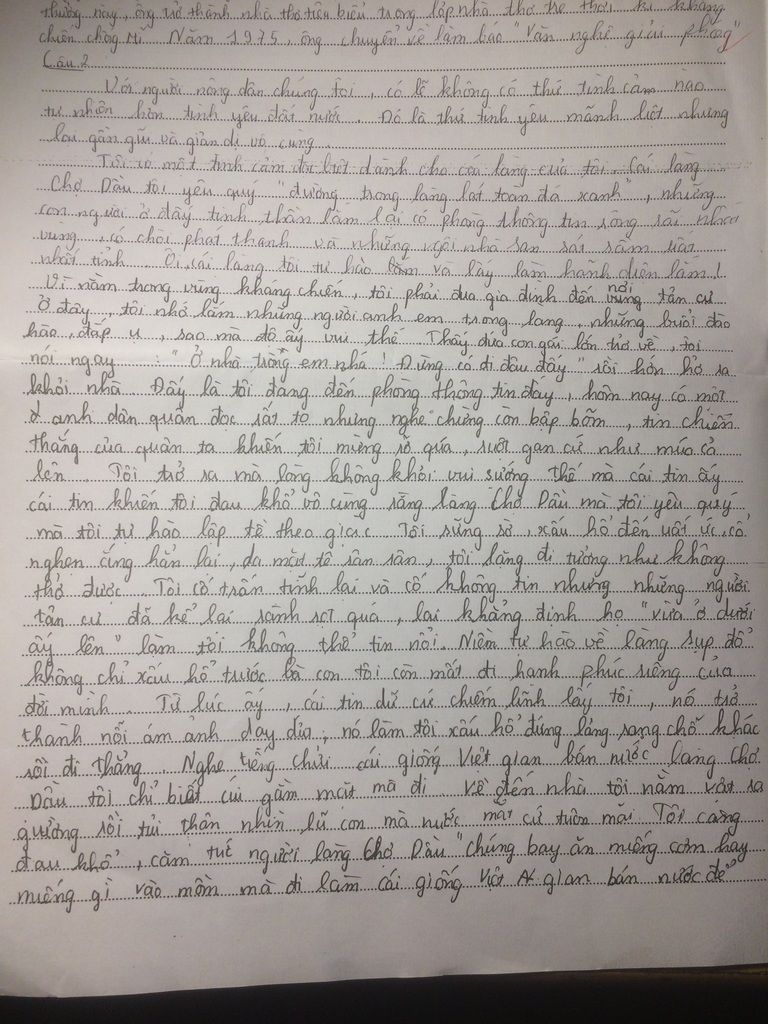 thường này, ông trở thành nhà thơ tiêu biểu trong lớp nhà thơ trẻ thời kì kháng
chiến chống Mĩ. Năm 1975, ông chuyển về làm báo "Văn nghệ giải phóng"
Câu 2
Với người nông dân chúng tôi, có lẽ không có thứ tình cảm nào
tự nhiên hơn tình yêu đất nước. Đó là thứ tình yêu mãnh liệt nhưng
lại gần gũi và giản dị vô cùng.
Tôi có một tình cảm đặc biệt dành cho cái làng của tôi. Cái làng
Chợ Dầu tôi yêu quý "đường trong làng lát toàn đá xanh", những
con người ở đây tinh thần lắm lại có phòng thông tin rộng rãi nhất
vùng, có chòi phát thanh và những ngôi nhà san sát sầm uất
nhất tỉnh. Ôi, cái làng tôi tự hào lắm và lấy làm hãnh diện lắm!
Vì nằm trong vùng kháng chiến, tôi phải đưa gia đình đến nơi tản cư
ở đây, tôi nhớ lắm những người anh em trong làng, những buổi đào
hào, đắp ụ, sao mà độ ấy vui thế. Thấy đứa con gái lớn trở về, tôi
nói ngay: "Ở nhà trông em nhá! Đừng có đi đâu đấy" rồi hớn hở ra
khỏi nhà. Đấy là tôi đang đến phòng thông tin đấy, hôm nay có một
anh dân quân đọc rất to nhưng nghe chừng còn bập bõm, tin chiến
thắng của quân ta khiến tôi mừng rỡ quá, ruột gan cứ như múa cả
lên. Tôi trở ra mà lòng không khỏi vui sướng thế mà cái tin ấy
cái tin khiến tôi đau khổ vô cùng rằng làng Chợ Dầu mà tôi yêu quý
mà tôi tự hào lập tề theo giặc. Tôi sững sờ, xấu hổ đến uất ức, cổ
nghẹn ắng hẳn lại, da mặt tê rân rân, tôi lặng đi tưởng như không
thở được. Tôi cố trấn tĩnh lại và cố không tin nhưng những người
tản cư đã kể lại rành rọt quá, lại khẳng định họ "vừa ở dưới
ấy lên" làm tôi không thể tin nổi. Niềm tự hào về làng sụp đổ
không chỉ xấu hổ trước bà con tôi còn mất đi hạnh phúc riêng của
đời mình. Từ lúc ấy, cái tin dữ cứ chiếm lĩnh lấy tôi, nó trở
thành nỗi ám ảnh day dứa, nó làm tôi xấu hổ đứng lảng sang chỗ khác
rồi đi thẳng. Nghe tiếng chửi cái giống Việt gian bán nước làng Chợ
Dầu tôi chỉ biết cúi gằm mặt mà đi. Về đến nhà tôi nằm vật ra
giường rồi tủi thân nhìn lũ con mà nước mắt cứ tuôn mãi. Tôi càng
đau khổ, căm tức người làng Chợ Dầu "chúng bay ăn miếng cơm hay
miếng gì vào mồm mà đi làm cái giống Việt gian bán nước để